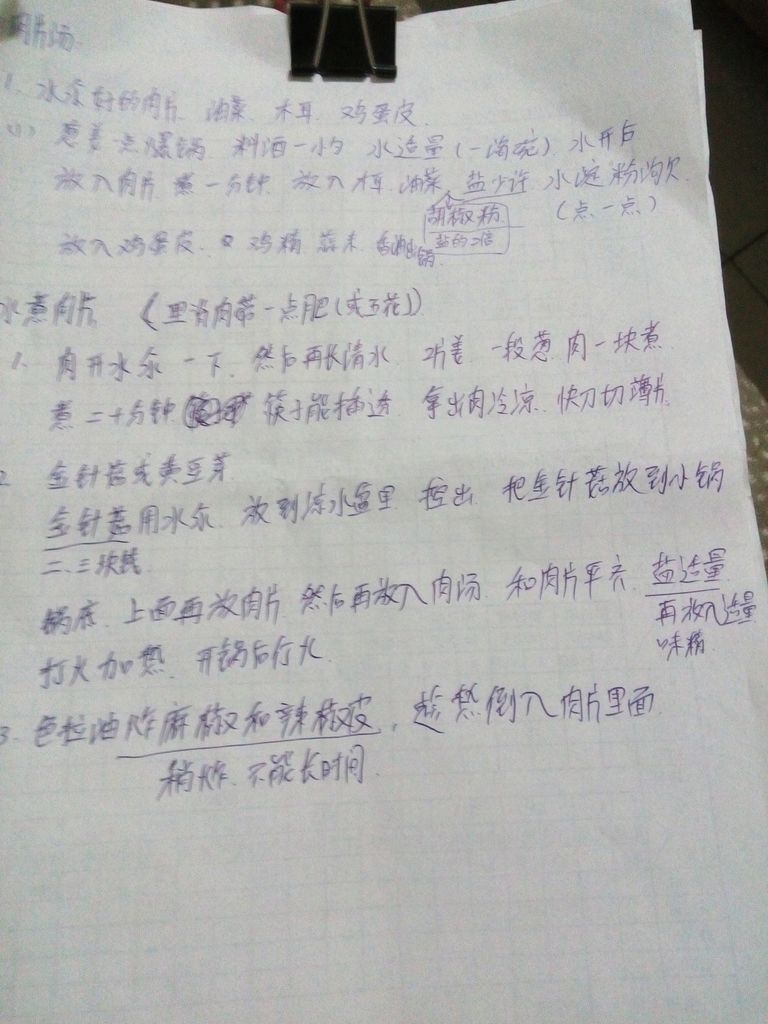 肉片汤
1. 水汆好的肉片 油菜 木耳 鸡蛋皮
(1) 葱姜点爆锅 料酒一小勺 水适量(一汤碗) 水开后
放入肉片 煮一分钟 放入木耳 油菜 盐少许 水淀粉沟欠
胡椒粉 (点一点)
盐的2倍
放入鸡蛋皮. 鸡精 蒜末 香油出锅
水煮肉片 (里脊肉带一点肥(或五花))
1. 肉开水汆一下. 然后再长清水 2片姜 一段葱 肉一块煮
煮二十分钟 筷子能插透 拿出肉冷凉. 快刀切薄片
2 金针菇或黄豆芽
金针菇用水汆 放到凉水盆里 控出 把金针菇放到小锅
二.三块钱
锅底. 上面再放肉片 然后再放入肉汤 和肉片平齐. 盐适量
再放入适量
打火加热. 开锅后行火 味精
3. 色拉油炸麻椒和辣椒皮, 趁热倒入肉片里面
稍炸. 不能长时间.